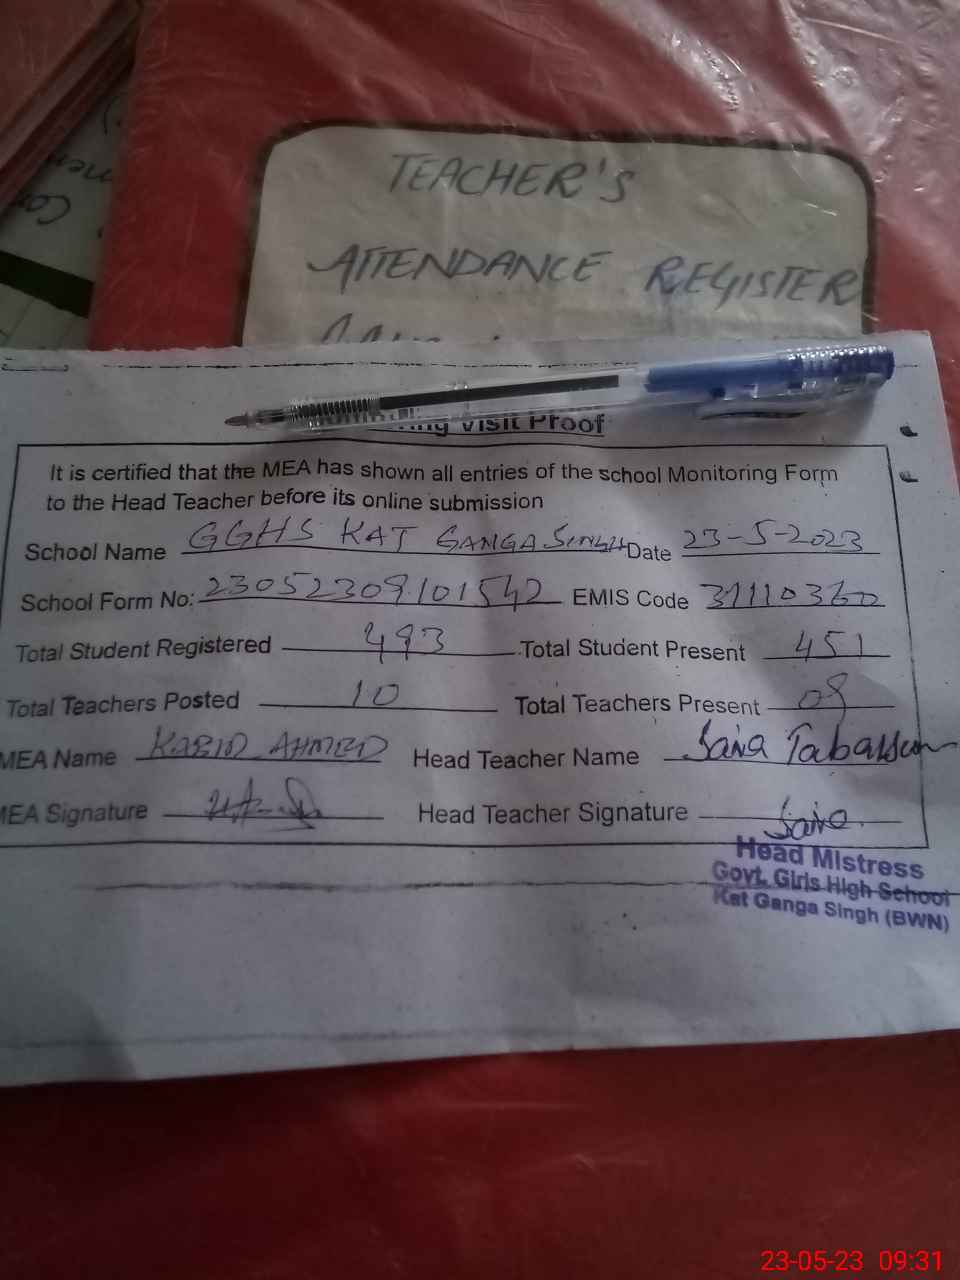 TEACHER'S
ATTENDANCE REGISTER
Visit Proof
It is certified that the MEA has shown all entries of the school Monitoring Form
to the Head Teacher before its online submission
School Name GGHS KAT GANGA SINGH Date 23-5-2023
School Form No: 23052309101542 EMIS Code 31110360
Total Student Registered 493 Total Student Present 451
Total Teachers Posted 10 Total Teachers Present 09
MEA Name AHMED Head Teacher Name Saira Tabassum
MEA Signature Head Teacher Signature Saira
Head Mistress
Govt. Girls High School
Kat Ganga Singh (BWN)
23-05-23 09:31